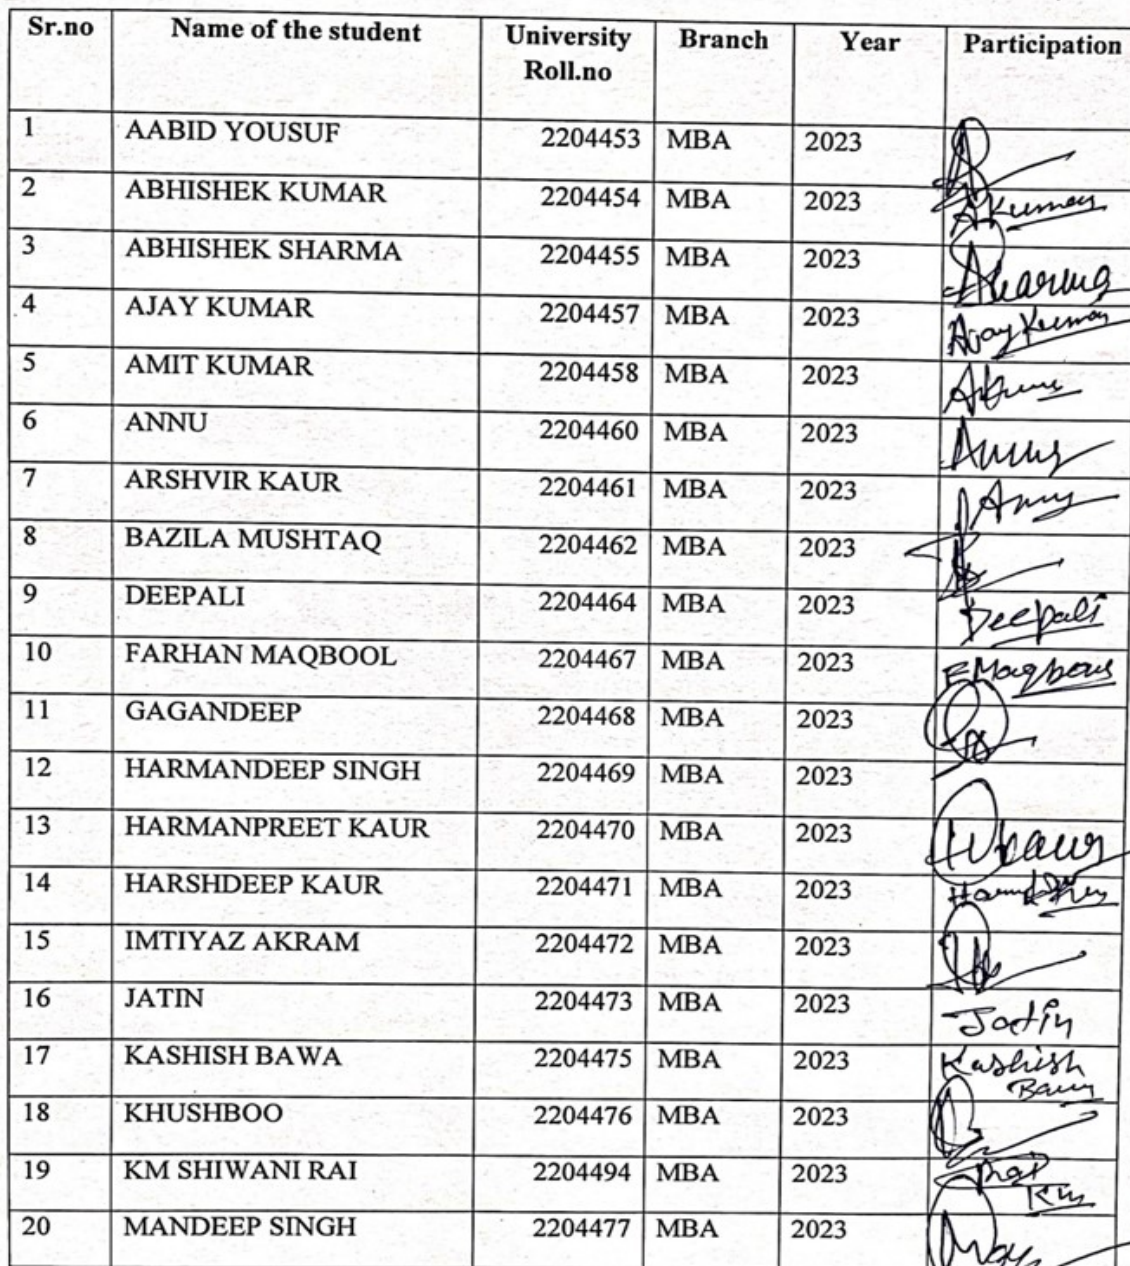 Sr.no Name of the student University Roll.no Branch Year Participation
1 AABID YOUSUF 2204453 MBA 2023
2 ABHISHEK KUMAR 2204454 MBA 2023 AKumar
3 ABHISHEK SHARMA 2204455 MBA 2023
4 AJAY KUMAR 2204457 MBA 2023 Ajay Kumar
5 AMIT KUMAR 2204458 MBA 2023
6 ANNU 2204460 MBA 2023
7 ARSHVIR KAUR 2204461 MBA 2023
8 BAZILA MUSHTAQ 2204462 MBA 2023
9 DEEPALI 2204464 MBA 2023 Deepali
10 FARHAN MAQBOOL 2204467 MBA 2023
11 GAGANDEEP 2204468 MBA 2023
12 HARMANDEEP SINGH 2204469 MBA 2023
13 HARMANPREET KAUR 2204470 MBA 2023
14 HARSHDEEP KAUR 2204471 MBA 2023
15 IMTIYAZ AKRAM 2204472 MBA 2023
16 JATIN 2204473 MBA 2023 Jatin
17 KASHISH BAWA 2204475 MBA 2023 Kashish
18 KHUSHBOO 2204476 MBA 2023
19 KM SHIWANI RAI 2204494 MBA 2023
20 MANDEEP SINGH 2204477 MBA 2023